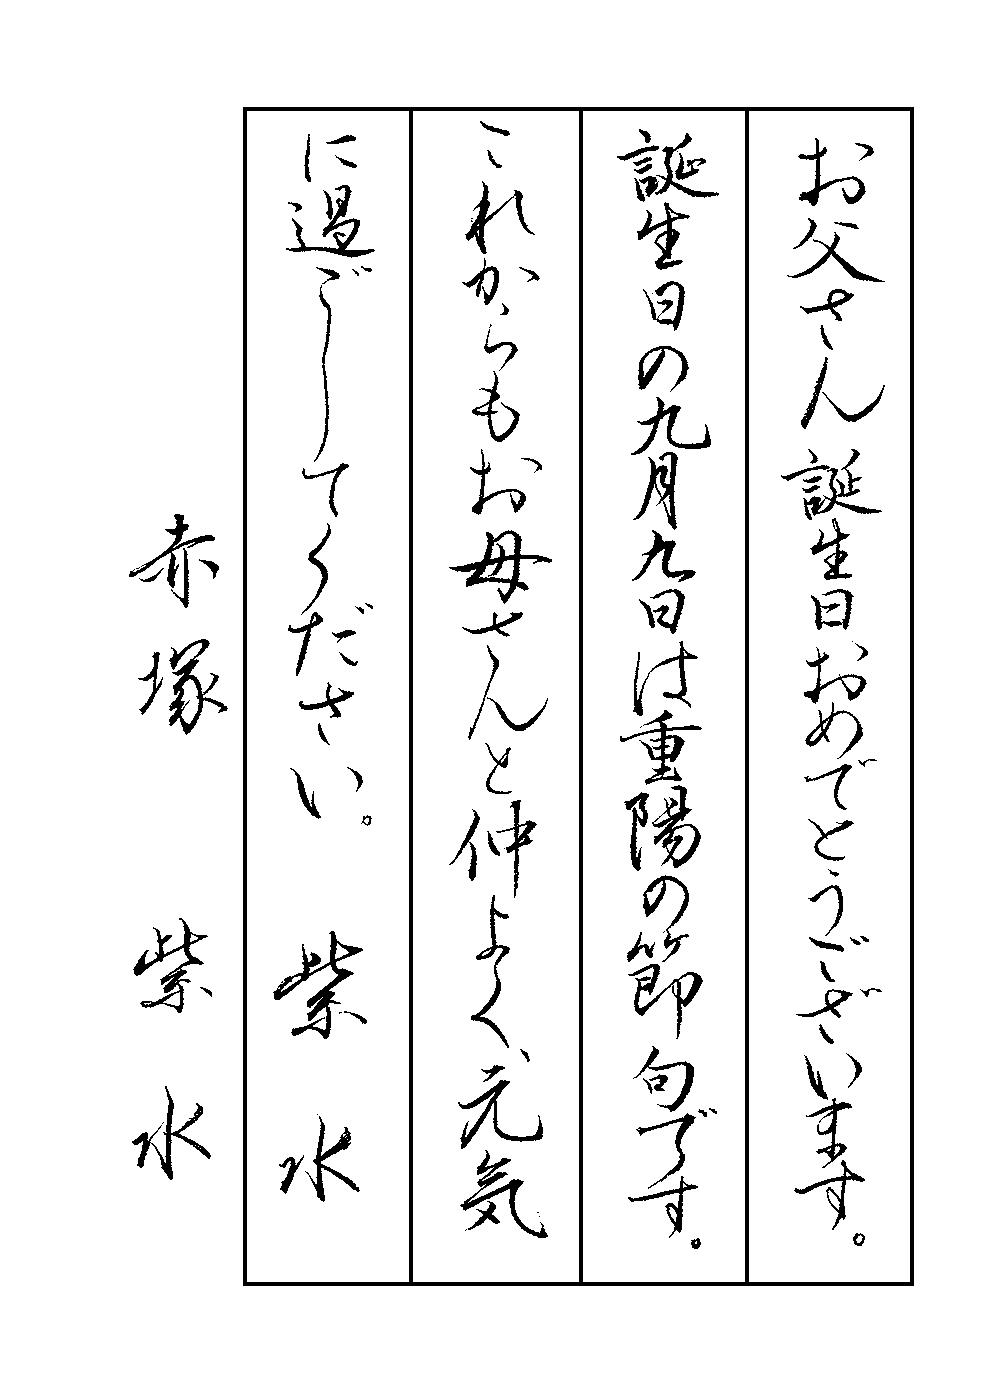 お父さん誕生日おめでとうございます。
誕生日の九月九日は重陽の節句です。
これからもお母さんと仲よく、元気
に過ごしてください。 紫水
赤塚 紫水